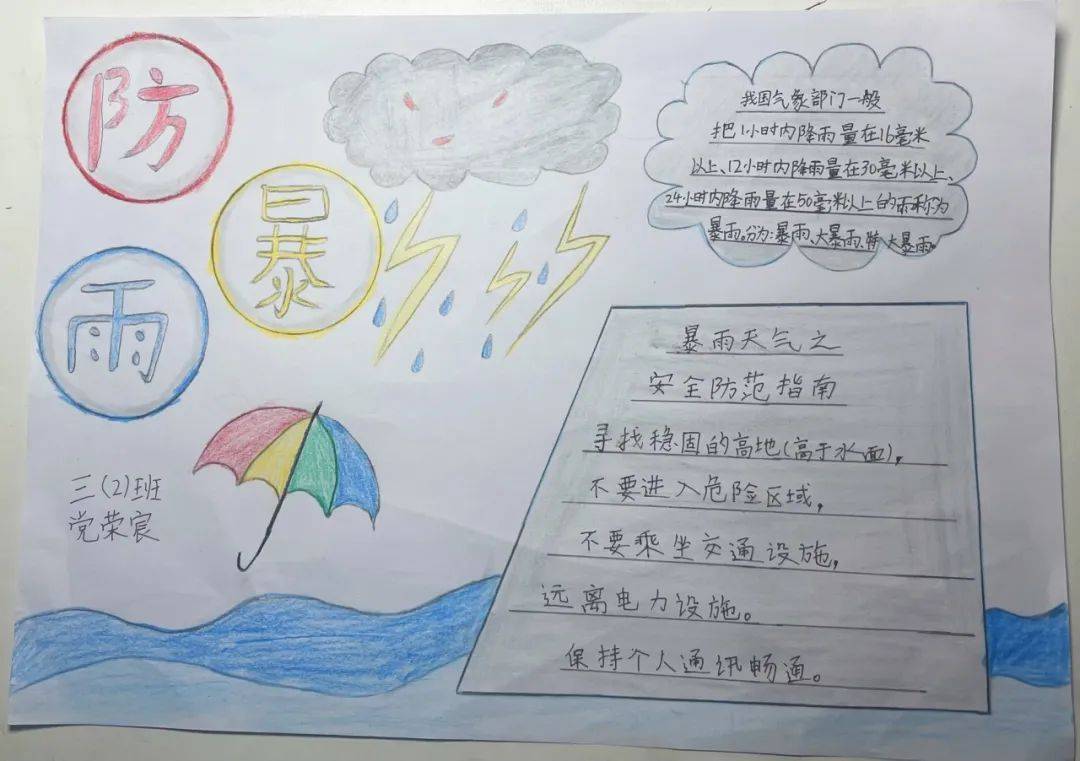 防
暴
雨
我国气象部门一般
把1小时内降雨量在16毫米
以上、12小时内降雨量在30毫米以上、
24小时内降雨量在50毫米以上的雨称为
暴雨。分为:暴雨、大暴雨、特大暴雨。
暴雨天气之
安全防范指南
寻找稳固的高地(高于水面),
不要进入危险区域,
不要乘坐交通设施,
远离电力设施。
保持个人通讯畅通。
三(2)班
党荣宸